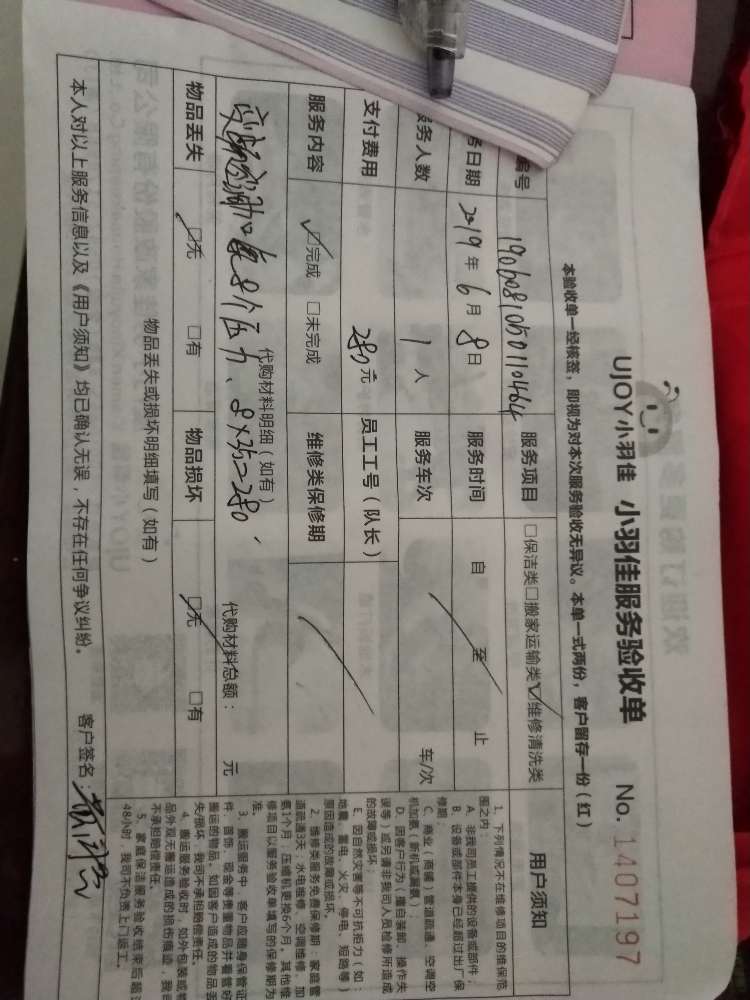 UJOY小羽佳 小羽佳服务验收单 No. 1407197
本验收单一经核签，即视为对本次服务验收无异议。本单一式两份，客户留存一份（红）
编号 服务项目 □保洁类□搬家运输类☑维修清洗类
日期 2019年6月8日 服务时间 自 至 止
务人数 1人 服务车次 车/次
支付费用 280元 员工工号（队长）
服务内容 ☑完成 □未完成 维修类保修期
代购材料明细（如有） 代购材料总额： 元
8个压力、8×35=280
物品丢失 ☑无 □有 物品损坏 ☑无 □有
物品丢失或损坏明细填写（如有）
本人对以上服务信息以及《用户须知》均已确认无误，不存在任何争议纠纷。 客户签名：
用户须知
1. 下列情况不在维修项目的维保范
围之内：
A. 非我司员工提供的设备或部件；
B. 设备或部件本身已经超过出厂保
修期；
C. 商业（商铺）管道疏通，空调空
机加氨（新机或漏氨）；
D. 因客户行为（擅自装卸、操作失
误等）或另请非我司人员检修所造成
的故障或损坏；
E. 因自然灾害等不可抗拒力（如：
地震、雷电、火灾、停电、短路等）
原因造成的故障或损坏。
2. 维修类服务免费保修期：家庭管
道疏通3天，水电维修、空调维修、加
氨1个月，压缩机更换6个月。其他维
修项目以服务验收单填写的保修期为
准。
3. 搬运服务中，客户应随身保管证
件、首饰、现金等贵重物品并看管好
搬运的物品，如因客户造成的物品丢
失/损坏，我司不承担赔偿责任。
4. 搬运服务验收时，如外包装或物
品外观无搬运造成的损伤痕迹，我司
不承担赔偿责任。
5. 家庭保洁服务验收结束后超过
48小时，我司不负责上门返工。